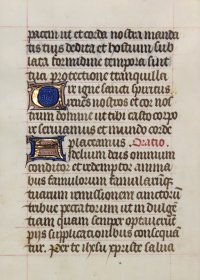 pacem ut et corda nostra manda
tis tuis dedita et hostium sub
lata formidine tempora sint
tua protectione tranquilla
Ure igne sancti spiritus
renes nostros et cor nos
trum domine ut tibi casto corpo
re serviamus et mundo corde
placeamus. Oratio.
Fidelium deus omnium
conditor et redemptor anima
bus famulorum famularumque
tuarum remissionem cunctorum
tribue peccatorum ut indulgen
tiam quam semper optaverunt
piis supplicationibus consequan
tur. Per te ihesu xpriste salva